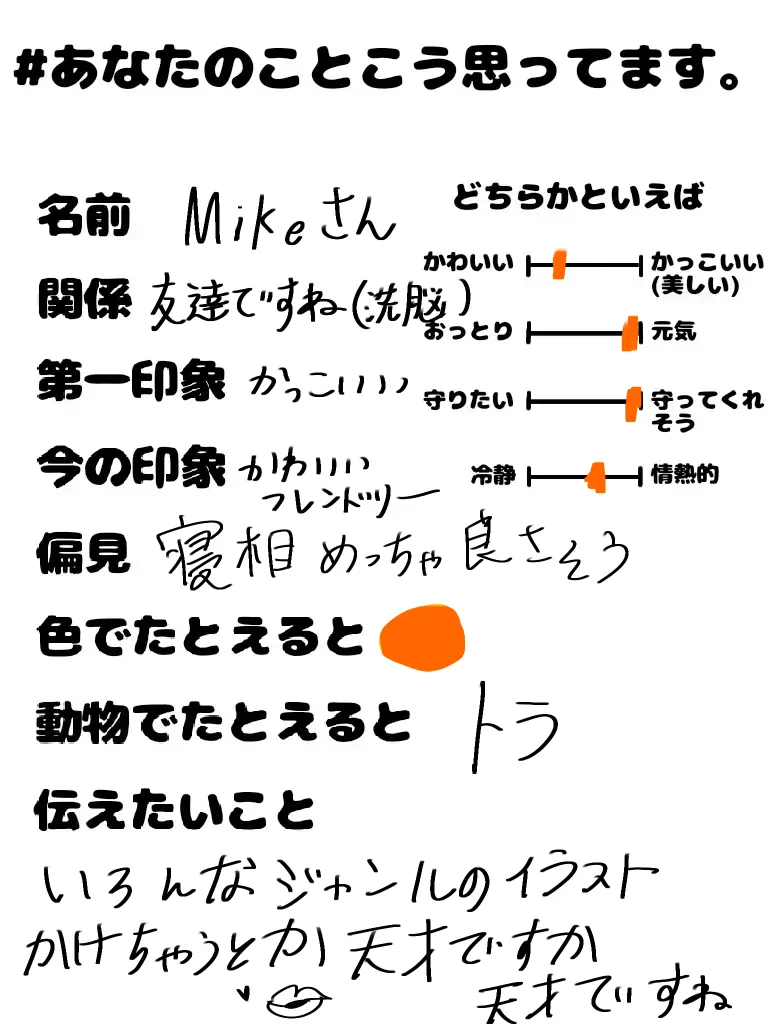 #あなたのことこう思ってます。
名前 Mikeさん
関係 友達ですね(洗脳)
第一印象 かっこいい
今の印象 かわいい
フレンドリー
偏見 寝相めっちゃ良さそう
色でたとえると
動物でたとえると トラ
伝えたいこと
いろんなジャンルのイラスト
かけちゃうとか天才ですか
天才ですね
どちらかといえば
かわいい かっこいい
(美しい)
おっとり 元気
守りたい 守ってくれ
そう
冷静 情熱的